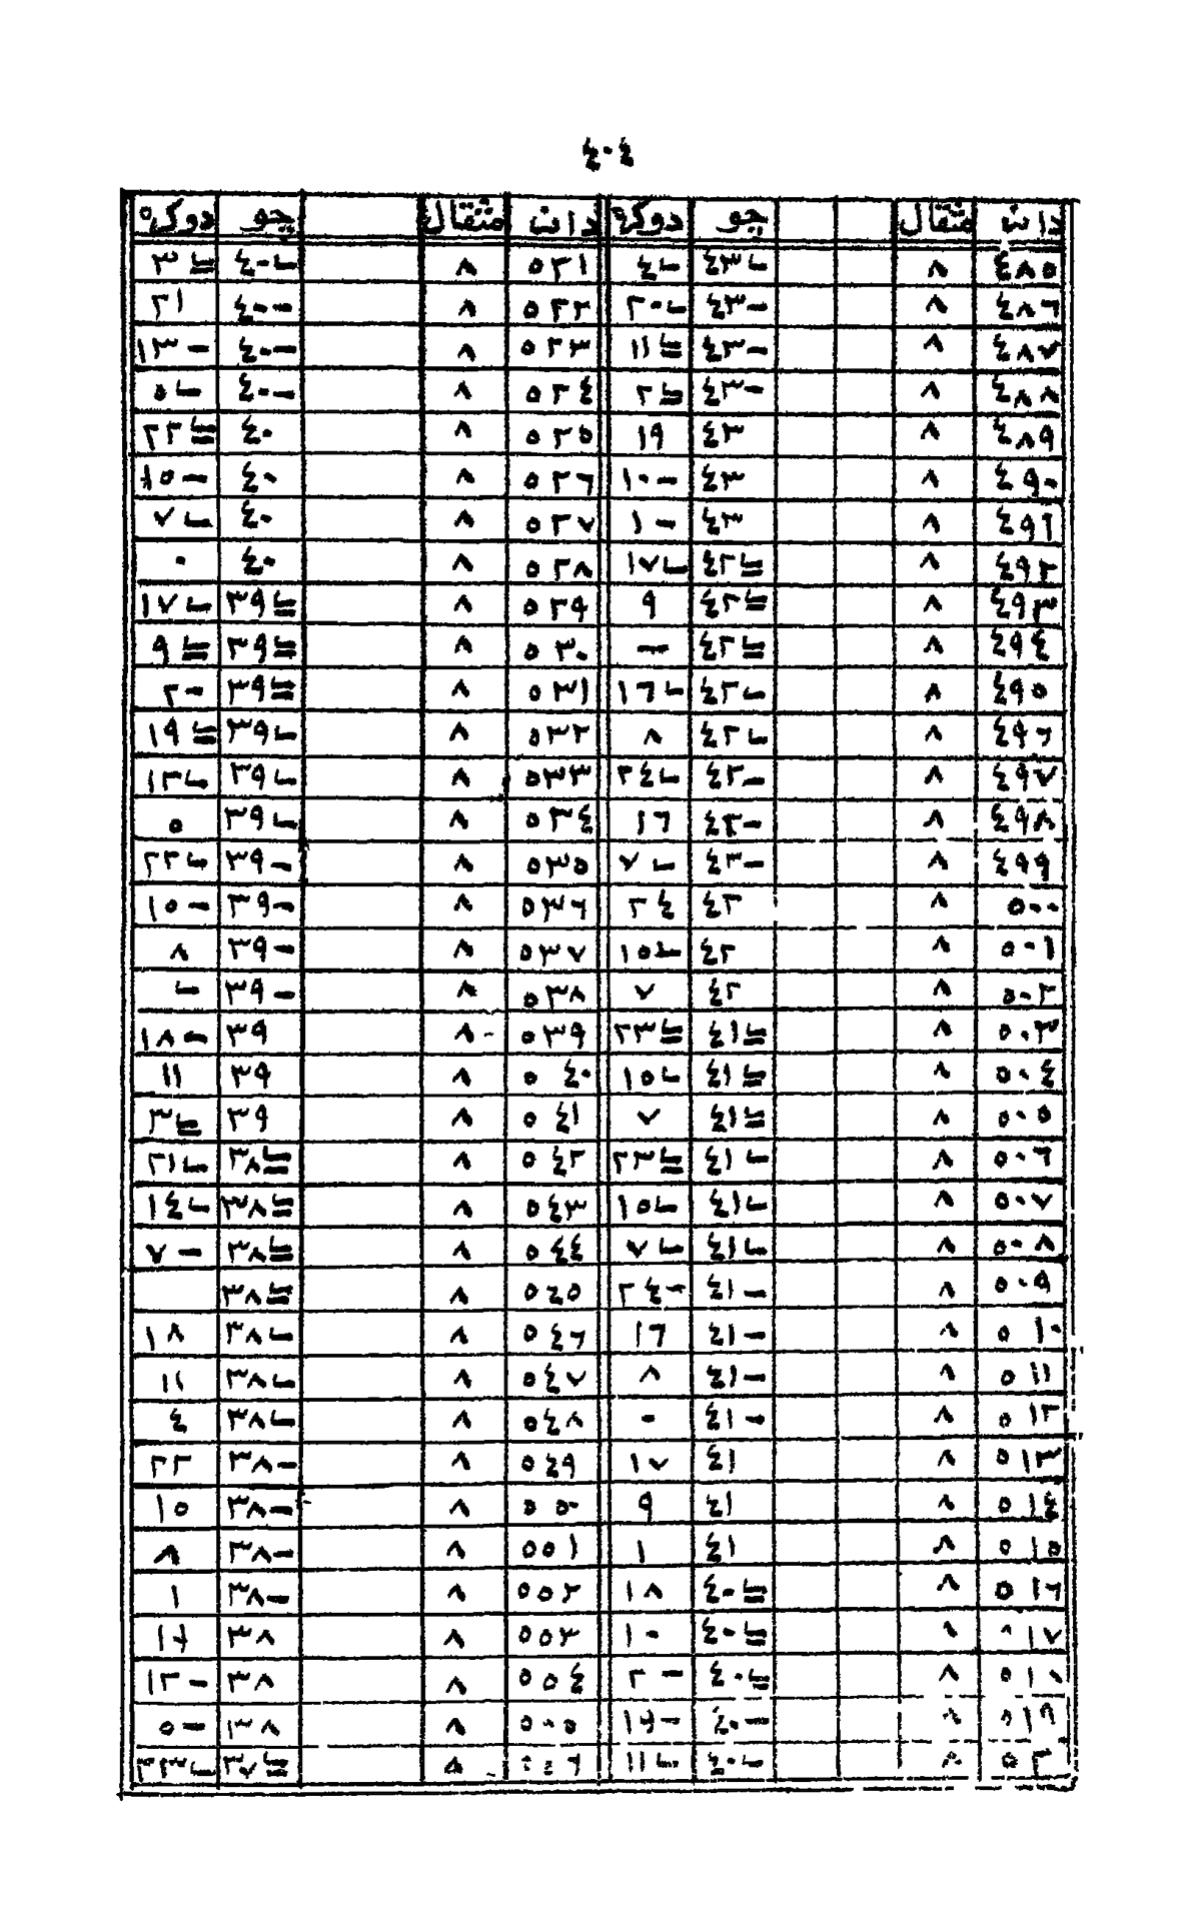 ٤٠٤
دانه مثقال چو دوكړه دانه مثقال چو دوكړه
٤٨٥ ٨ ٤٣ ٤ ٥٢١ ٨ ٤٠ ٣
٤٨٦ ٨ ٤٣- ٢٠ ٥٢٢ ٨ ٤٠- ٢١
٤٨٧ ٨ ٤٣- ١١ ٥٢٣ ٨ ٤٠- ١٣-
٤٨٨ ٨ ٤٣- ٢ ٥٢٤ ٨ ٤٠- ٥
٤٨٩ ٨ ٤٣ ١٩ ٥٢٥ ٨ ٤٠ ٢٢
٤٩٠ ٨ ٤٣ ١٠- ٥٢٦ ٨ ٤٠ ١٥-
٤٩١ ٨ ٤٣ ١- ٥٢٧ ٨ ٤٠ ٧
٤٩٢ ٨ ٤٢ ١٧ ٥٢٨ ٨ ٤٠ ٠
٤٩٣ ٨ ٤٢ ٩ ٥٢٩ ٨ ٣٩ ١٧
٤٩٤ ٨ ٤٢ - ٥٣٠ ٨ ٣٩ ٩
٤٩٥ ٨ ٤٢ ١٦ ٥٣١ ٨ ٣٩ ٢-
٤٩٦ ٨ ٤٢ ٨ ٥٣٢ ٨ ٣٩ ١٩
٤٩٧ ٨ ٤٢- ٢٤ ٥٣٣ ٨ ٣٩ ١٢
٤٩٨ ٨ ٤٢- ١٦ ٥٣٤ ٨ ٣٩ ٥
٤٩٩ ٨ ٤٣- ٧ ٥٣٥ ٨ ٣٩- ٢٢
٥٠٠ ٨ ٤٢ ٢٤ ٥٣٦ ٨ ٣٩- ١٥-
٥٠١ ٨ ٤٢ ١٥ ٥٣٧ ٨ ٣٩- ٨
٥٠٢ ٨ ٤٢ ٧ ٥٣٨ ٨ ٣٩-
٥٠٣ ٨ ٤١ ٢٣ ٥٣٩ ٨ ٣٩ ١٨-
٥٠٤ ٨ ٤١ ١٥ ٥٤٠ ٨ ٣٩ ١١
٥٠٥ ٨ ٤١ ٧ ٥٤١ ٨ ٣٩ ٣
٥٠٦ ٨ ٤١ ٢٣ ٥٤٢ ٨ ٣٨ ٢١
٥٠٧ ٨ ٤١ ١٥ ٥٤٣ ٨ ٣٨ ١٤
٥٠٨ ٨ ٤١ ٧ ٥٤٤ ٨ ٣٨ ٧-
٥٠٩ ٨ ٤١- ٢٤- ٥٤٥ ٨ ٣٨
٥١٠ ٨ ٤١- ١٦ ٥٤٦ ٨ ٣٨ ١٨
٥١١ ٨ ٤١- ٨ ٥٤٧ ٨ ٣٨ ١١
٥١٢ ٨ ٤١- ٠ ٥٤٨ ٨ ٣٨ ٤
٥١٣ ٨ ٤١ ١٧ ٥٤٩ ٨ ٣٨- ٢٢
٥١٤ ٨ ٤١ ٩ ٥٥٠ ٨ ٣٨- ١٥
٥١٥ ٨ ٤١ ١ ٥٥١ ٨ ٣٨- ٨
٥١٦ ٨ ٤٠ ١٨ ٥٥٢ ٨ ٣٨- ١
٥١٧ ٨ ٤٠ ١٠ ٥٥٣ ٨ ٣٨ ١٩
٥١٨ ٨ ٤٠ ٢- ٥٥٤ ٨ ٣٨ ١٢-
٥١٩ ٨ ٤٠- ١٩- ٥٥٥ ٨ ٣٨ ٥-
٥٢٠ ٨ ٤٠ ١١ ٥٥٦ ٨ ٣٧ ٢٣